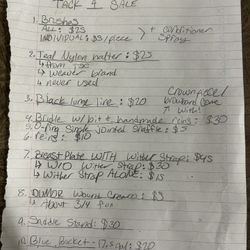 TACK 4 SALE
1. Brushes
ALL: $25 } + conditioner
INDIVIDUAL: $5/piece spray
2. Teal Nylon halter: $25
↳ from TSC
↳ Weaver brand
↳ never used
3. Black lunge line: $20
Crown piece/
browband
w/ bit:
4. Bridle w/ bit & handmade reins: $30
5. O-ring Single Jointed Snaffle: $5
6. reins: $10
7. Breast Plate WITH Wither Strap: $45
↳ W/O Wither Strap: $30
↳ Wither Strap ALONE: $15
8. DUMOR Wound Cream: $5
↳ About 3/4 full
9. Saddle Stand: $30
10. Blue
$20